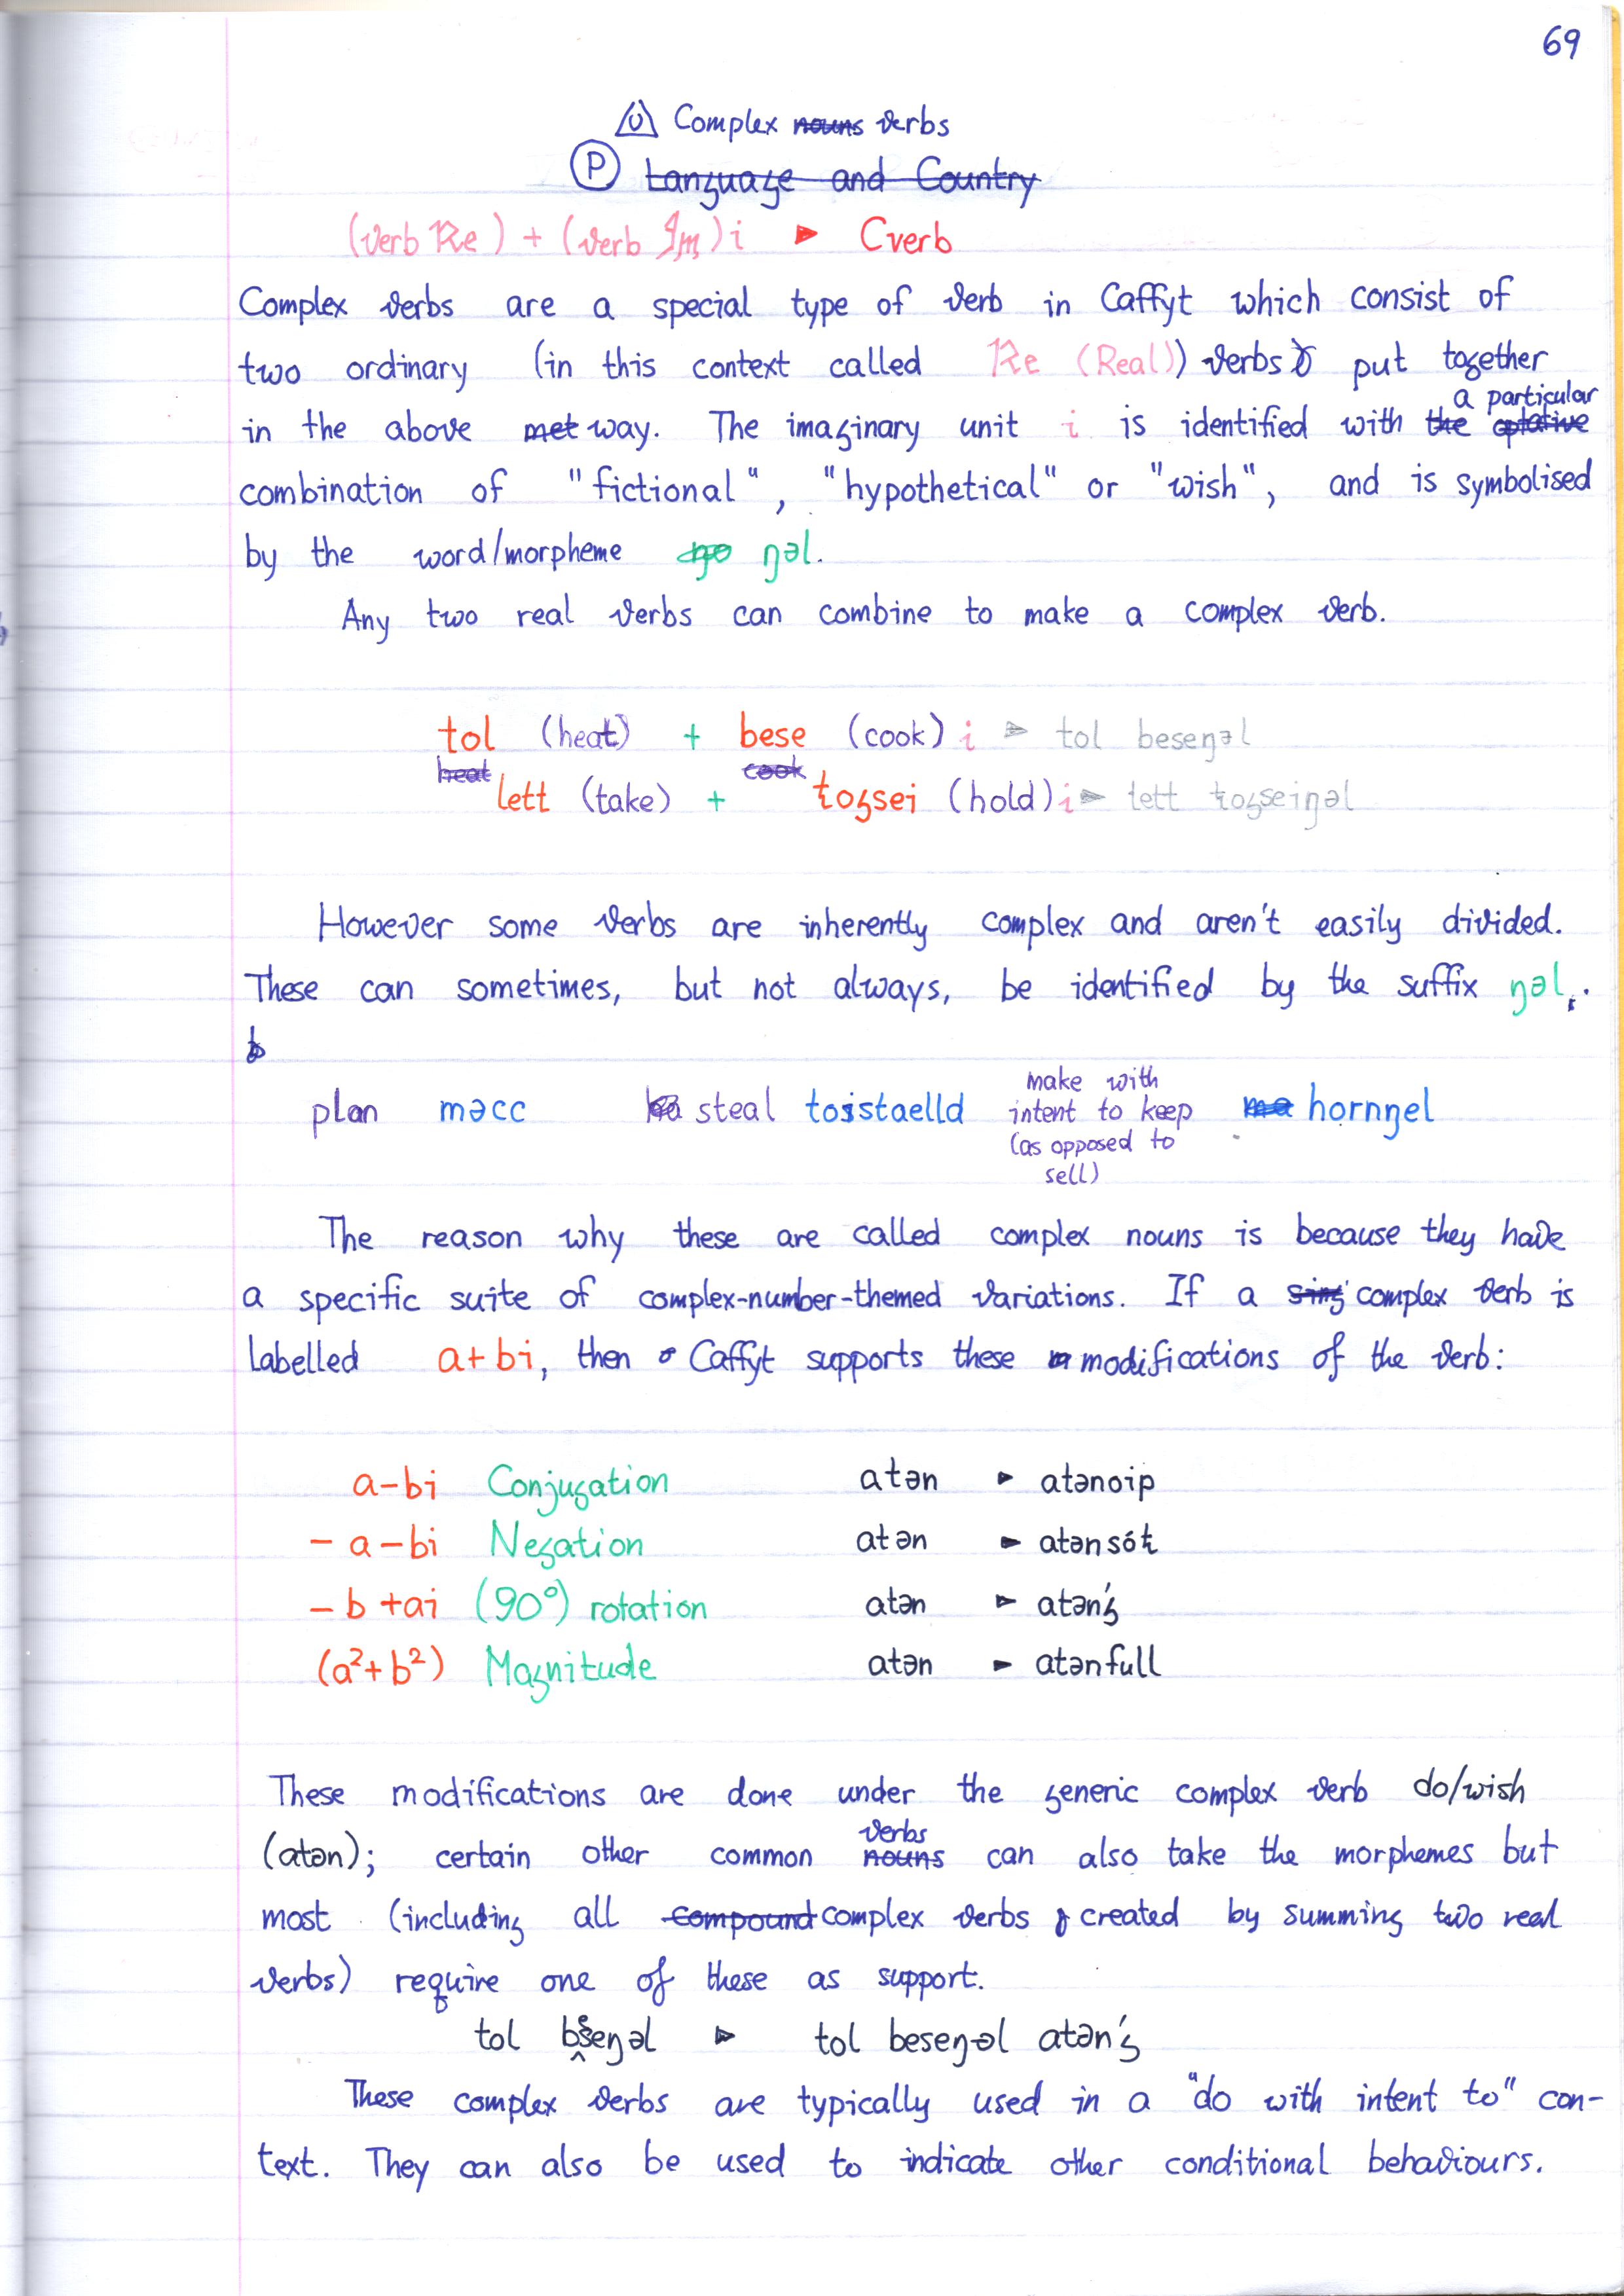 69
Complex nouns verbs
P Language and Country
(verb Re) + (verb Im)i ▸ Cverb
Complex verbs are a special type of verb in Caffyt which consist of
two ordinary (in this context called Re (Real)) verbs put together
in the above met way. The imaginary unit i is identified with the optative a particular
combination of "fictional", "hypothetical" or "wish", and is symbolised
by the word/morpheme ŋo ŋəl.
Any two real verbs can combine to make a complex verb.
tol (heat) + bese (cook)i ▸ tol beseŋəl
heat cook
lett (take) + ŧoʒsei (hold)i ▸ lett ŧoʒseiŋəl
However some verbs are inherently complex and aren't easily divided.
These can sometimes, but not always, be identified by the suffix ŋəl.
plan məcc steal toistaelld make with intent to keep (as opposed to sell) hornŋel
The reason why these are called complex nouns is because they have
a specific suite of complex-number-themed variations. If a sing complex verb is
labelled a+bi, then Caffyt supports these modifications of the verb:
a-bi Conjugation atən ▸ atənoip
-a-bi Negation atən ▸ atənsóŧ
-b+ai (90°) rotation atən ▸ atən'ʒ
(a²+b²) Magnitude atən ▸ atənfull
These modifications are done under the generic complex verb do/wish
(atən); certain other common nouns verbs can also take the morphemes but
most (including all compound complex verbs created by summing two real
verbs) require one of these as support.
tol beseŋəl ▸ tol beseŋəl atən'ʒ
These complex verbs are typically used in a "do with intent to" con-
text. They can also be used to indicate other conditional behaviours.